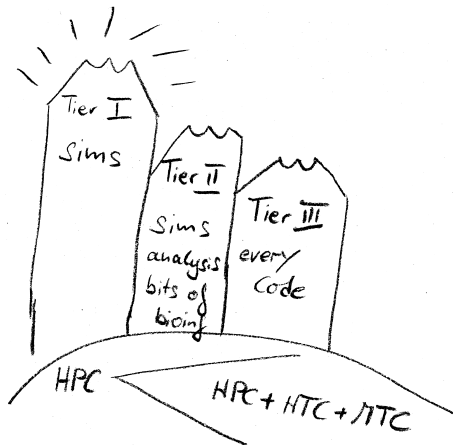 Tier I
Sims
Tier II
Sims
analysis
bits of
bioinf
Tier III
every
Code
HPC
HPC + HTC + MTC